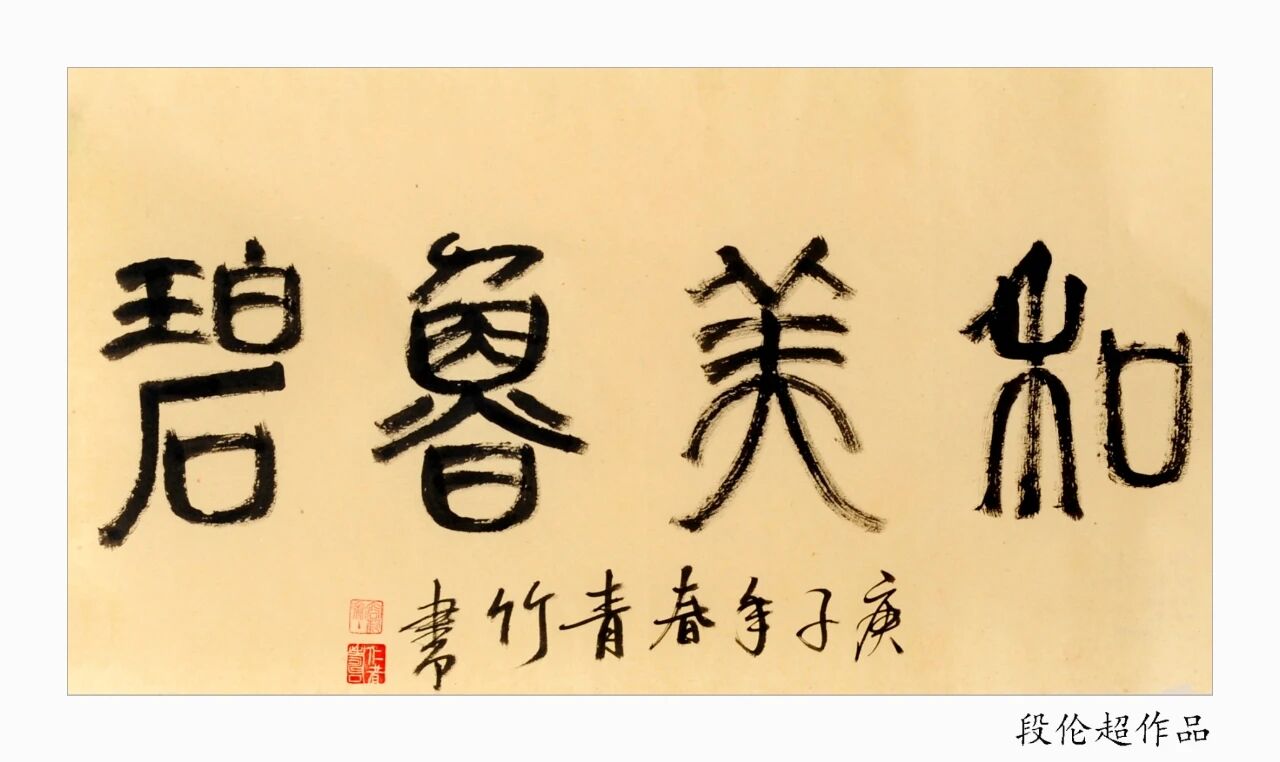 和美魯碧
庚子年春青竹書
段伦超作品